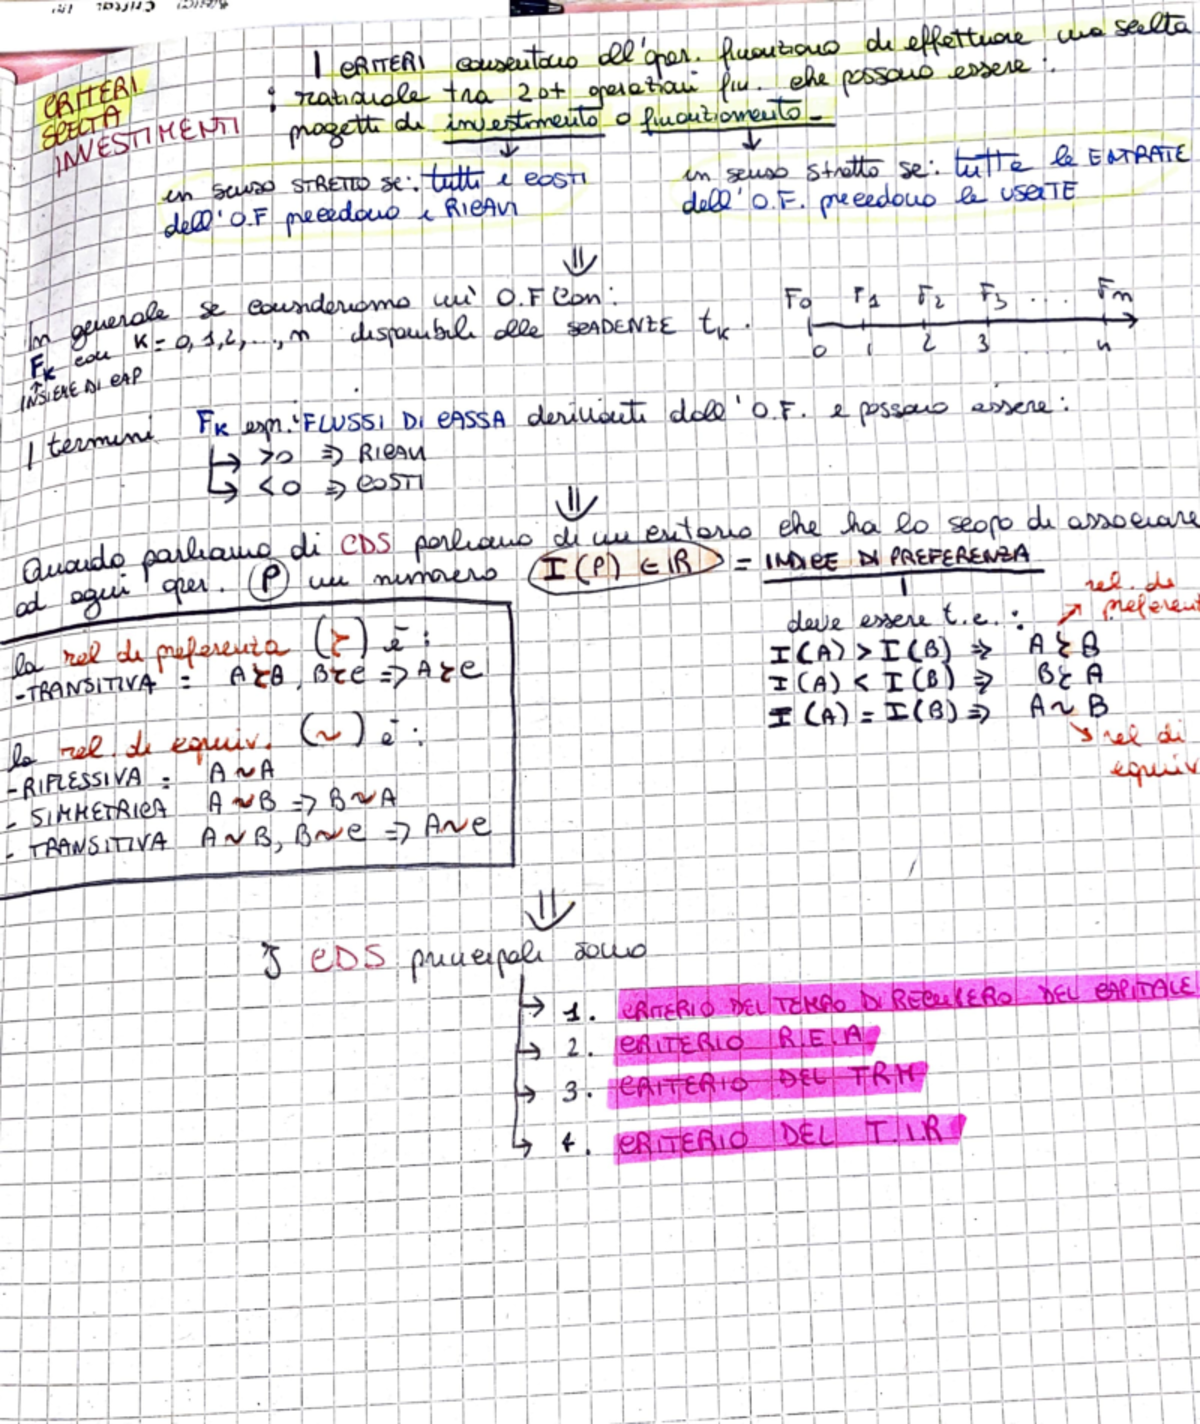 CRITERI
SCELTA
INVESTIMENTI
I CRITERI consentono all'oper. finanziario di effettuare una scelta
razionale tra 2 o + operazioni fin. che possono essere:
progetti di investimento o finanziamento
in senso STRETTO se: tutti i COSTI
dell'O.F precedono i RICAVI
in senso stretto se: tutte le ENTRATE
dell'O.F. precedono le USCITE
In generale se consideriamo un' O.F con:
F_K con K = 0,1,2,...,n disponibili alle SCADENZE t_K.
INSIEME DI CAP
F_0 F_1 F_2 F_3 .... F_n
0 1 2 3 n
I termini F_K espr. i FLUSSI DI CASSA derivanti dall'O.F. e possono essere:
→ >0 ⇒ RICAVI
→ <0 ⇒ COSTI
Quando parliamo di CDS parliamo di un criterio che ha lo scopo di associare
ad ogni oper. (P) un numero I(P) ∈ IR = INDICE DI PREFERENZA
deve essere t.c.:
rel. di
I(A) > I(B) ⇒ A ≿ B
I(A) < I(B) ⇒ B ≿ A
I(A) = I(B) ⇒ A ~ B
rel di
la rel di preferenza (≿) è:
- TRANSITIVA = A≿B, B≿C => A≿C
la rel. di equiv. (~) è:
- RIFLESSIVA = A~A
- SIMMETRICA A~B => B~A
- TRANSITIVA A~B, B~C => A~C
I CDS principali sono
→ 1. CRITERIO DEL TEMPO DI RECUPERO DEL CAPITALE
→ 2. CRITERIO R.E.A
→ 3. CRITERIO DEL TRM
→ 4. CRITERIO DEL T.I.R